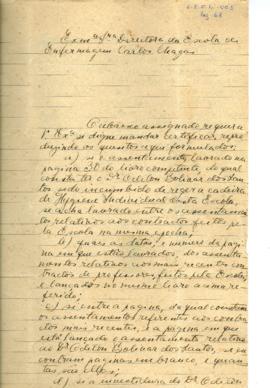 Exmª Snrª Directora da Escola de
Enfermagem Carlos Chagas
O abaixo assignado requer a
V. Exª se digne mandar certificar, repro-
duzindo os quesitos aqui formulados:
a) si o assentamento lavrado na
pagina 30 do livro competente, do qual
consta ter o Dr. Edilon Bolivar dos San-
tos sido incumbido de reger a cadeira
de Hygiene Individual desta Escola,
se acha lavrado entre os assentamen-
tos relativos aos contractos feitos pe-
la Escola na mesma epocha;
b) quaes as datas, e numero da pagi-
na em que estão lançados, dos assenta-
mentos relativos aos mais recentes con-
tractos de professores feitos pela Escola,
e lançados no mesmo livro acima re-
ferido;
c) si entre a pagina, da qual constam
os assentamentos referentes aos contra-
ctos mais recentes, e a pagina em que
está lançado o assentamento relativo
ao Dr. Edilon Bolivar dos Santos, se en-
contram paginas em branco, e quan-
tas são ellas;
d) si a investidura do Dr. Edilon